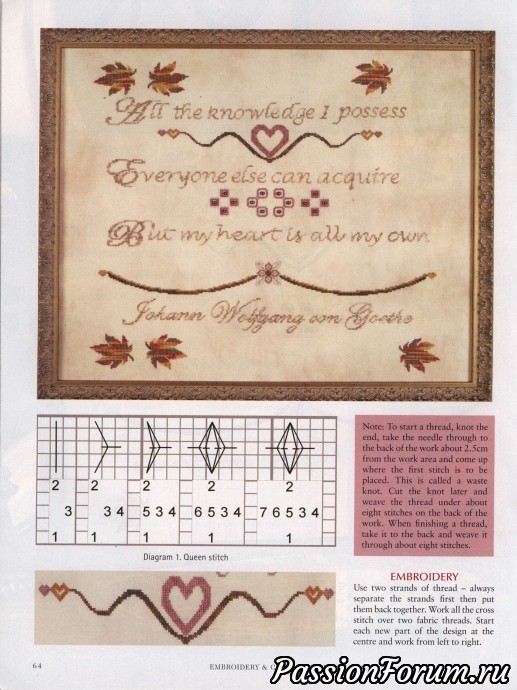 All the knowledge I possess
Everyone else can acquire
But my heart is all my own
Johann Wolfgang von Goethe
2 2 2 2 2
3 3 4 5 3 4 6 5 3 4 7 6 5 3 4
1 1 1 1 1
Diagram 1. Queen stitch
Note: To start a thread, knot the
end, take the needle through to
the back of the work about 2.5cm
from the work area and come up
where the first stitch is to be
placed. This is called a waste
knot. Cut the knot later and
weave the thread under about
eight stitches on the back of the
work. When finishing a thread,
take it to the back and weave it
through about eight stitches.
EMBROIDERY
Use two strands of thread – always
separate the strands first then put
them back together. Work all the cross
stitch over two fabric threads. Start
each new part of the design at the
centre and work from left to right.
64
EMBROIDERY &
PassionForum.ru